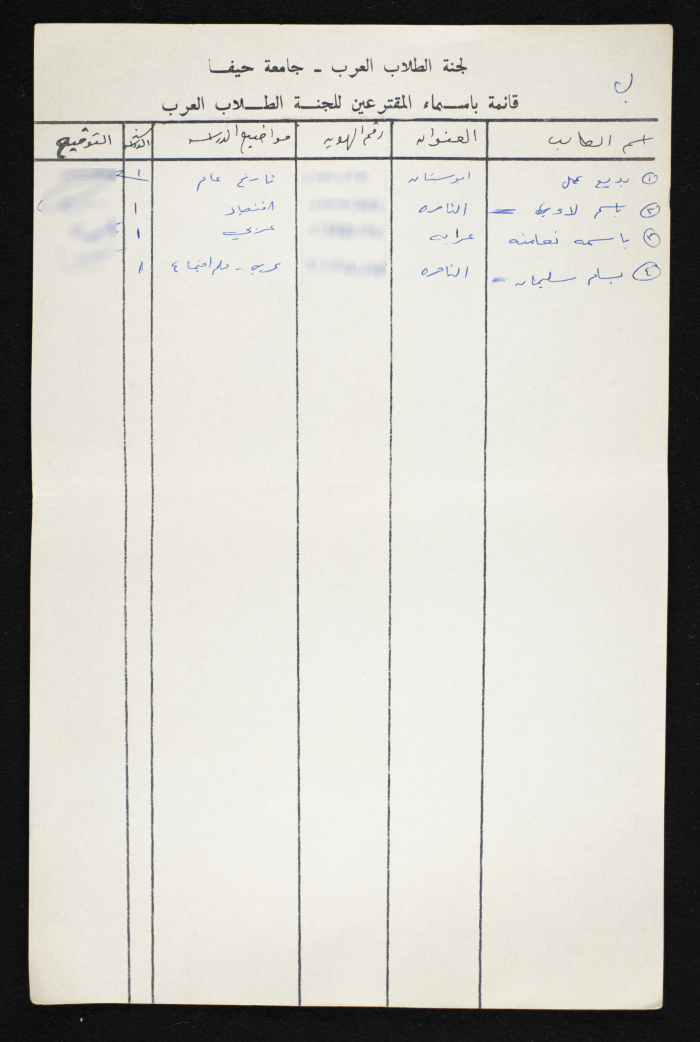 لجنة الطلاب العرب - جامعة حيفا
ب
قائمة باسماء المقترعين للجنة الطلاب العرب
اسم الطالب العنوان رقم الهوية مواضيع الدراسة التوقيع
١ بديع عام تاريخ ابوسنان ١
٢ باسم الناصره اقتصاد ١
٣ باسمه نعامنه عرابه عربي ١
٤ بسام سليمان الناصره عربي - علم اجتماع ١